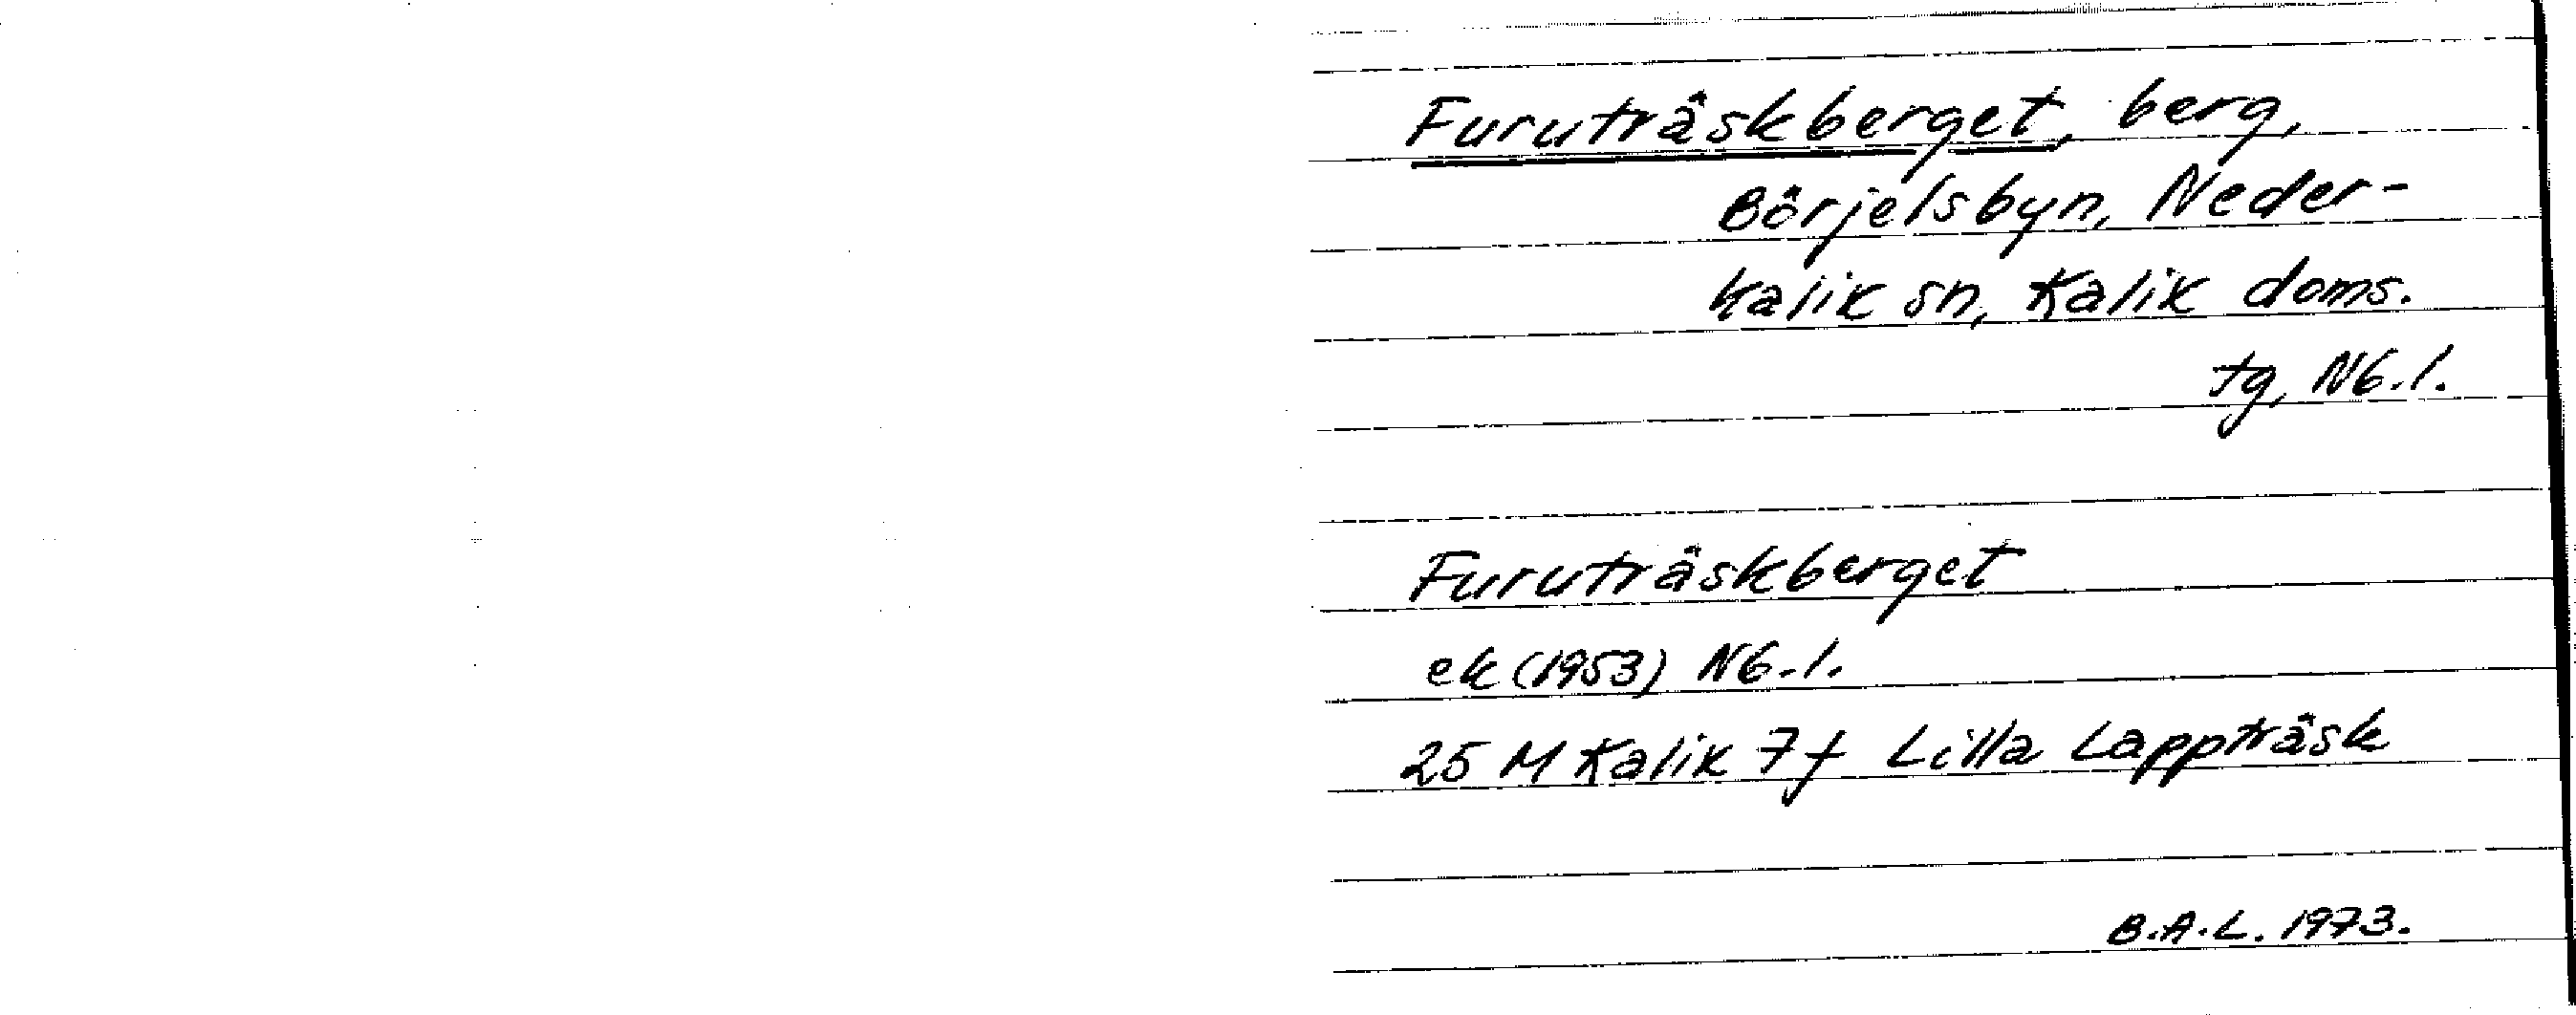 Furuträskberget, berg,
Börjelsbyn, Neder-
kalix sn, Kalix doms.
tg, Nb.l.
Furuträskberget
ek (1953) Nb.l.
25 M Kalix 7f Lilla Lappträsk
B.A.L. 1973.